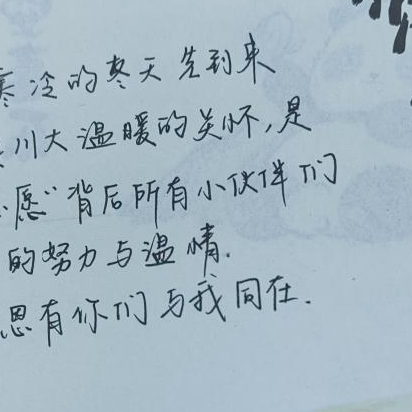 寒冷的冬天先到来
川大温暖的关怀,是
愿”背后所有小伙伴们
的努力与温情.
恩有你们与我同在.